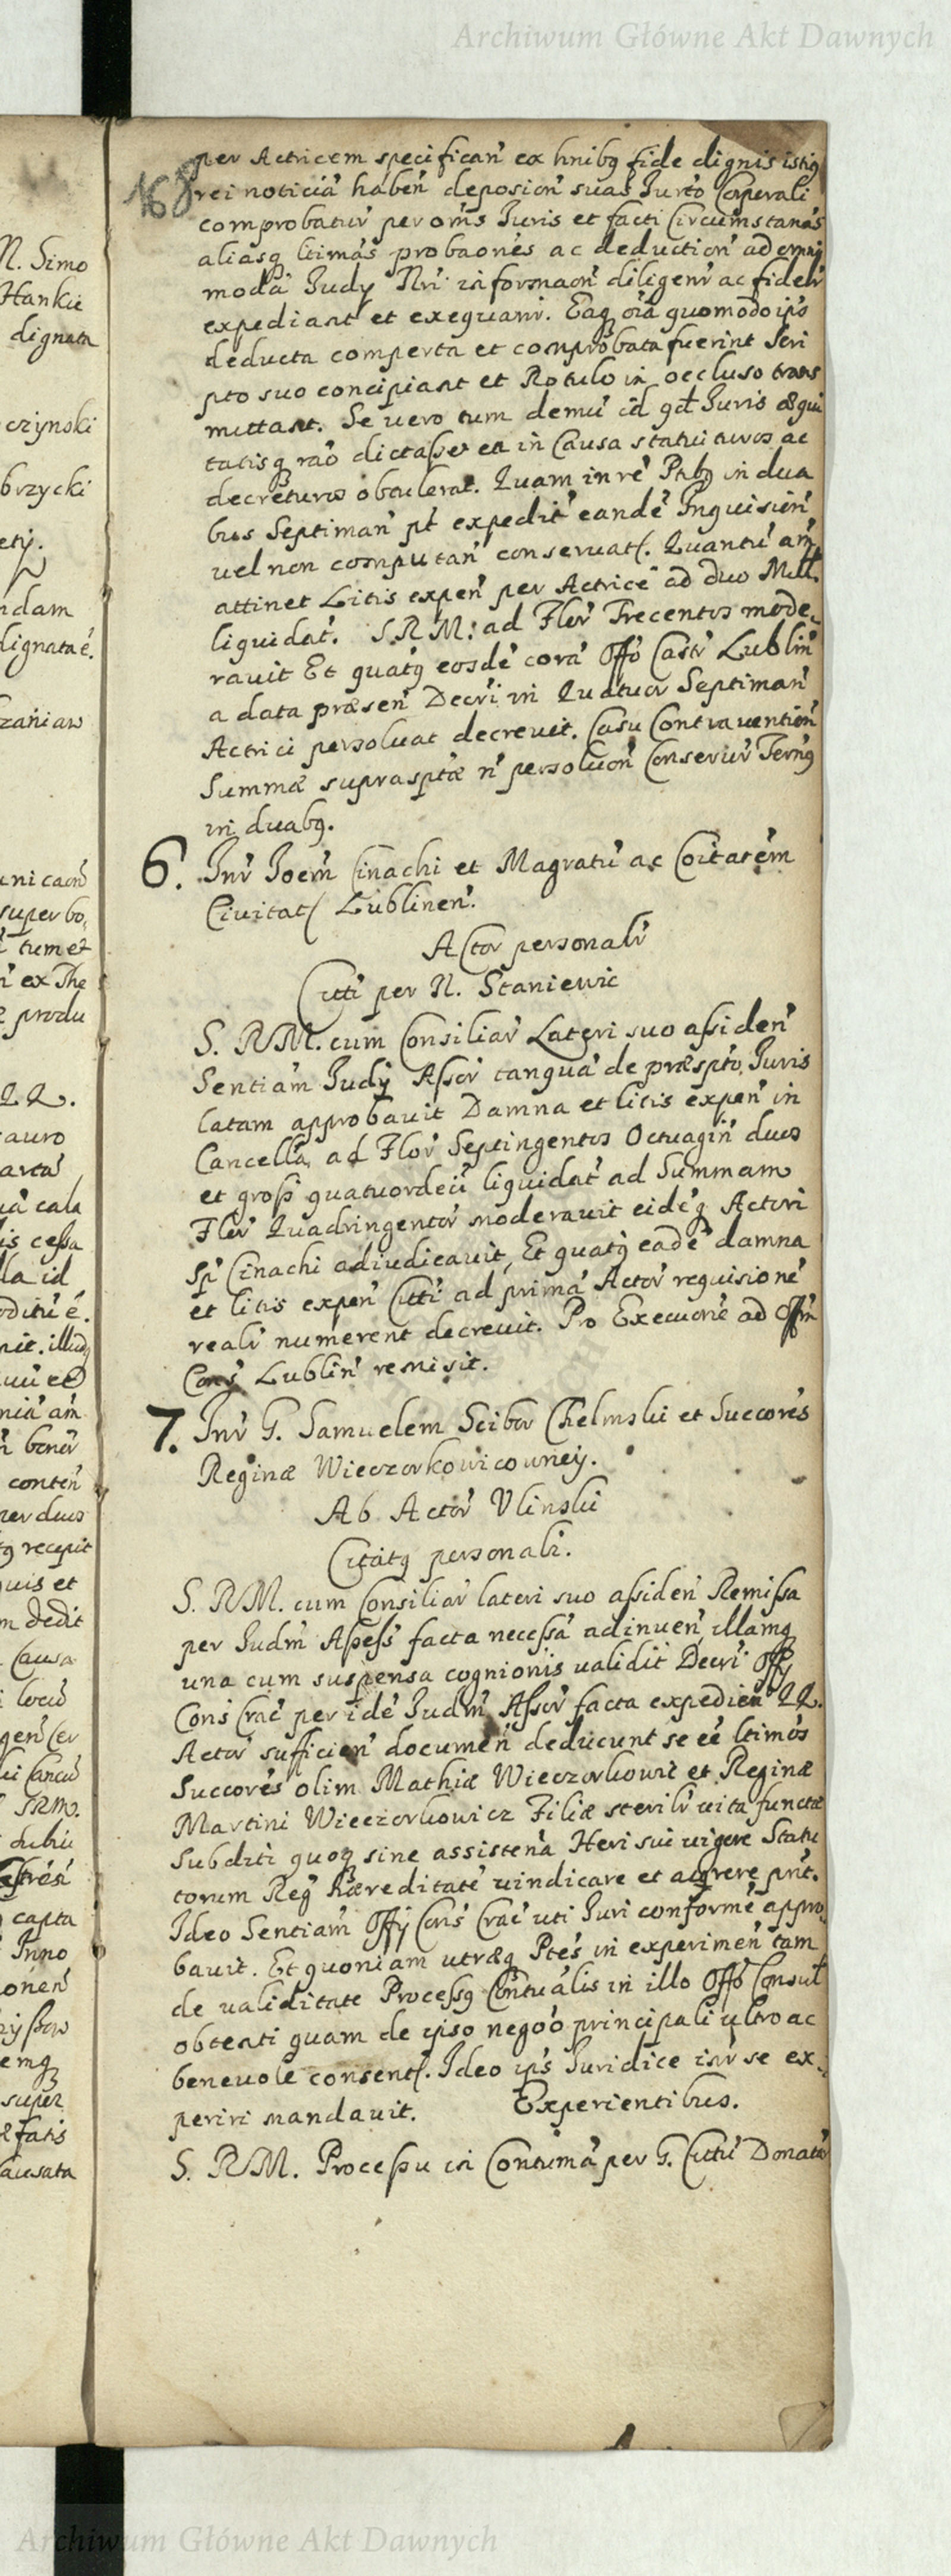 Archiwum Główne Akt Dawnych
168
per Actricem specifican̄ ex hnibꝫ fide dignis istiꝰ
rei noticiā haben̄ deposion̄ suas Jurto Corperali
comprobatur per oms Juris et facti Circumstanās
aliasqꝫ ltimās probaones ac deduction̄ ad omni
modā Judy Nri informaon̄ diligenr ac fidelr
expediant et exequanr. Eaqꝫ oīa quomodo ips
deducta comperta et comprobata fuerint Scri
pto suo concipiant et Rotulo in occluso trans
mittant. Se vero tum demū id qd Juris æqui
tatisqꝫ rao dictaßet ea in Causa statuturos ac
decreturos obtulerat. Quam in re Ptibꝫ in dua
bus Septiman̄ pt expedit eandē Inquision̄
vel non computan̄ conservat. Quantū am̄
attinet Litis expen̄ per Actricē ad duo Mill.
liquidat. S.R.M. ad Flor Trecentos mode,
ravit Et quatꝫ eosdē corā Offo Castr Lublin̄
a data præsen̄ Decri in Quatuor Septiman̄
Actrici persolvat decrevit. Casu Contravention̄
Summæ supraspta n̄ persolvon̄ Conserur Ternꝰ
in duabꝫ.
6. Inr Joem Cinachi et Magratū ac Coitatem
Civitat Lublinen.
Actor personalr
Citti per N. Staniewic
S. RM. cum Consiliar Lateri suo aßiden̄
Sentiam Judy Aßor tanquā de præspto Juris
latam approbavit Damna et litis expen̄ in
Cancellā ad Flor Septingentos Octuagin̄ duos
et groß quatuordeci liquidat ad Summam
Flor Quadringentor moderavit eidēqꝫ Actori
sp Cinachi adiudicavit, Et quatꝫ eadē damna
et litis expen̄ Citti ad primā Actor requisionē
reali numerent decrevit. Pro Execuone ad Offm
Cons Lublin̄ remisit.
7. Inr G. Samuelem Scibor Chelmski et Succores
Reginæ Wieczorkowicowney.
Ab Actor Ulinski
Citatꝫ personali.
S. RM. cum Consiliar lateri suo aßiden̄ Remißa
per Judm Aßeß facta neceßa adinuen̄, illamqꝫ
una cum suspensa cognionis validit Decri Offy
Cons Crac per idē Judm Aßor facta expedien̄ QQ.
Actor sufficien̄ documen̄ deducunt se eē ltimos
Succores olim Mathiæ Wieczorkowic et Reginæ
Martini Wieczorkowicz Filiæ sterilr vita functæ
Subditi quoqꝫ sine assistena Heri sui vigore Statu
torum Reg Hæreditatē vindicare et acqrere pnt.
Ideo Sentiam Offy Cons Crac uti Juri conformē appro,
bavit. Et quoniam utræqꝫ Ptes in experimen̄ tam
de validitate Proceßꝰ Contualis in illo Offo Consul
obtenti quam de ipso nego principali ultro ac
benevole consent. Ideo ips Juridice inr se ex,
periri mandavit. Experientibus.
S. RM. Proceßu in Contumā per G. Cittū Donatur
N. Simo
Hankie
dignata
czynski
brzycki
ety.
ndam
dignatae.
super bo,
tum et
ex The
produ
QQ.
auro
cala
is ceßa
la id
conten̄
per duos
recepit
quis et
m dedit
Causa
SRM.
capta
super
fatis
ausata
Archiwum Główne Akt Dawnych